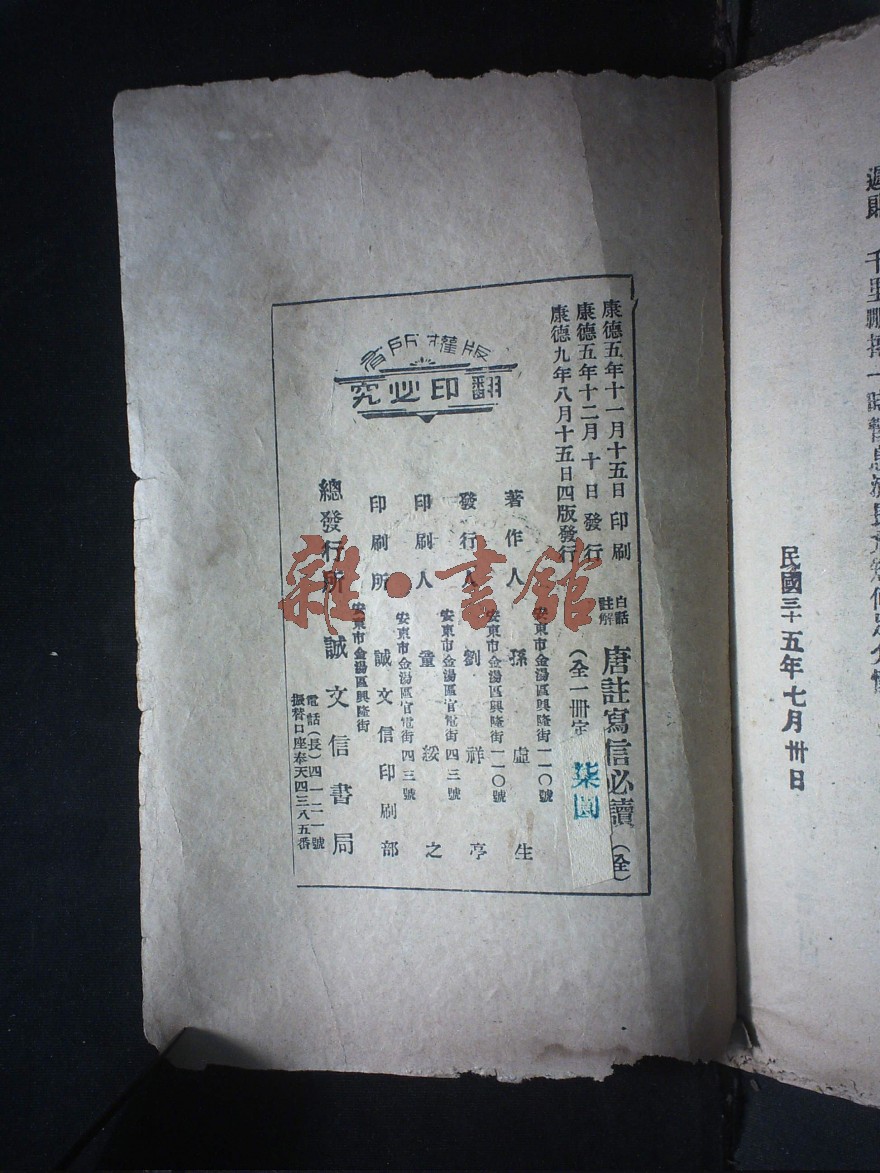 民國三十五年七月卅日
白話
註解
唐註寫信必讀(全)
(全一冊定
柒圓
康德五年十一月十五日印刷
康德五年十二月十日發行
康德九年八月十五日四版發行
安東市金湯區興隆街一一〇號
著作人 孫虛生
安東市金湯區興隆街一一〇號
發行人 劉祥亭
安東市金湯區官電街四三號
印刷人 童綏之
安東市金湯區官電街四三號
印刷所 誠文信印刷部
安東市金湯區興隆街
總發行所 誠文信書局
電話(長)四一二一號
振替口座奉天四三八五番
版權所有
翻印必究
雜·書館